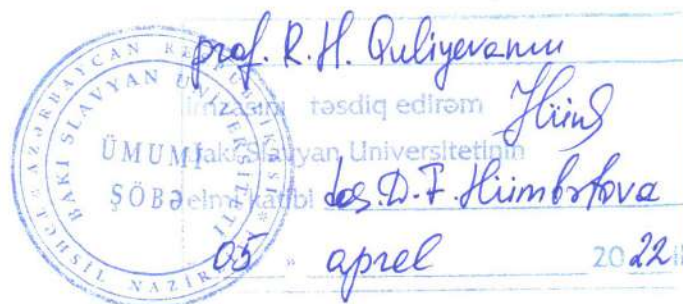 prof. R.H. Quliyevanın
imzasını təsdiq edirəm
Bakı Slavyan Universitetinin
elmi katibi dos. D.F. Hümbətova
05 " aprel 2022 il
AZƏRBAYCAN RESPUBLİKASI * TƏHSİL NAZİR
BAKI SLAVYAN UNİVERSİTETİ
ÜMUMİ
ŞÖBƏ